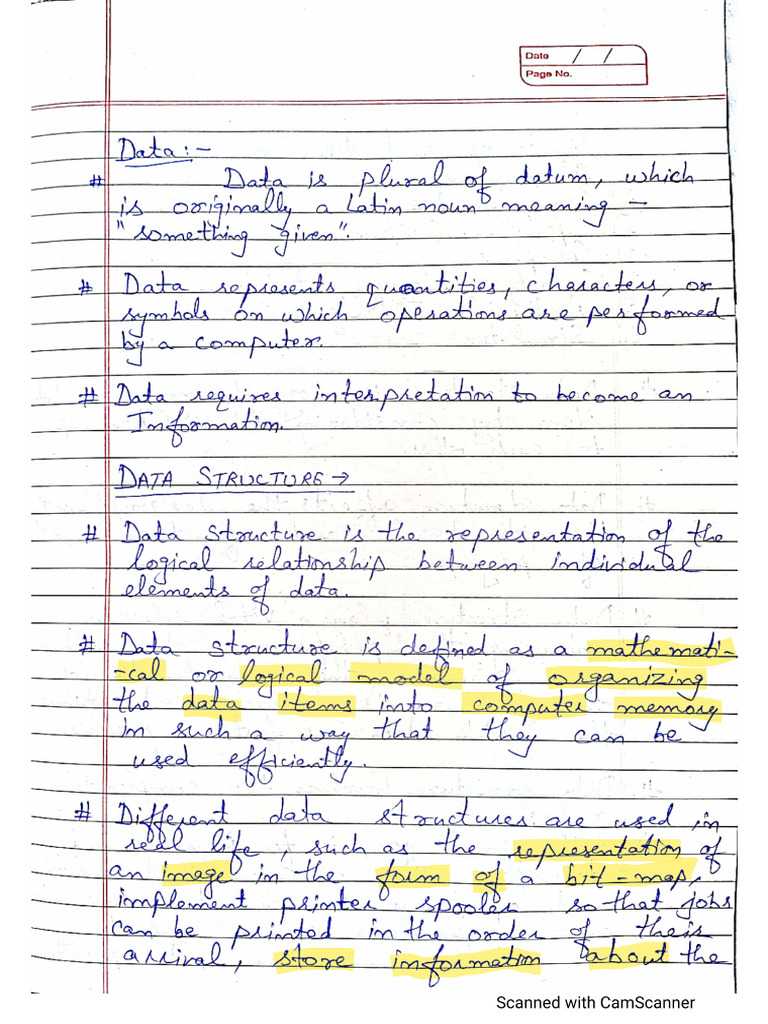 Date / /
Page No.
Data:-
# Data is plural of datum, which
is originally a Latin noun meaning -
"something given".
# Data represents quantities, characters, or
symbols on which operations are performed
by a computer.
# Data requires interpretation to become an
Information.
DATA STRUCTURE →
# Data structure is the representation of the
logical relationship between individual
elements of data.
# Data structure is defined as a mathemati-
-cal or logical model of organizing
the data items into computer memory
in such a way that they can be
used efficiently.
# Different data structures are used in
real life, such as the representation of
an image in the form of a bit-map,
implement printer spooler so that jobs
can be printed in the order of their
arrival, store information about the
Scanned with CamScanner